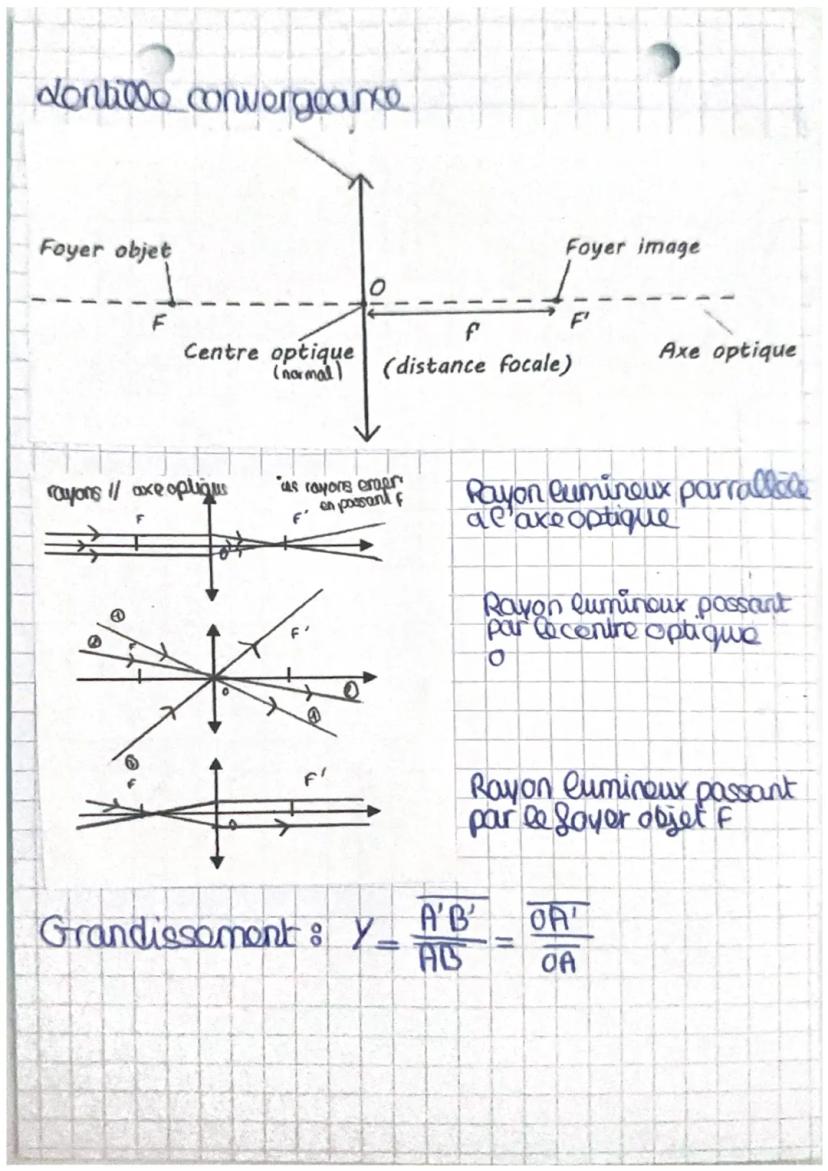 Lentille convergeance
Foyer objet
Foyer image
O
F
F'
f
Centre optique
(normal)
(distance focale)
Axe optique
rayons // axe optique
les rayons emer
en passant F
F
F'
O
Rayon lumineux parrallèle
à l'axe optique
1
2
F
F'
o
2
1
3
Rayon lumineux passant
par le centre optique
O
F
F'
o
Rayon lumineux passant
par le foyer objet F
Grandissement : γ = A'B' / AB = OA' / OA